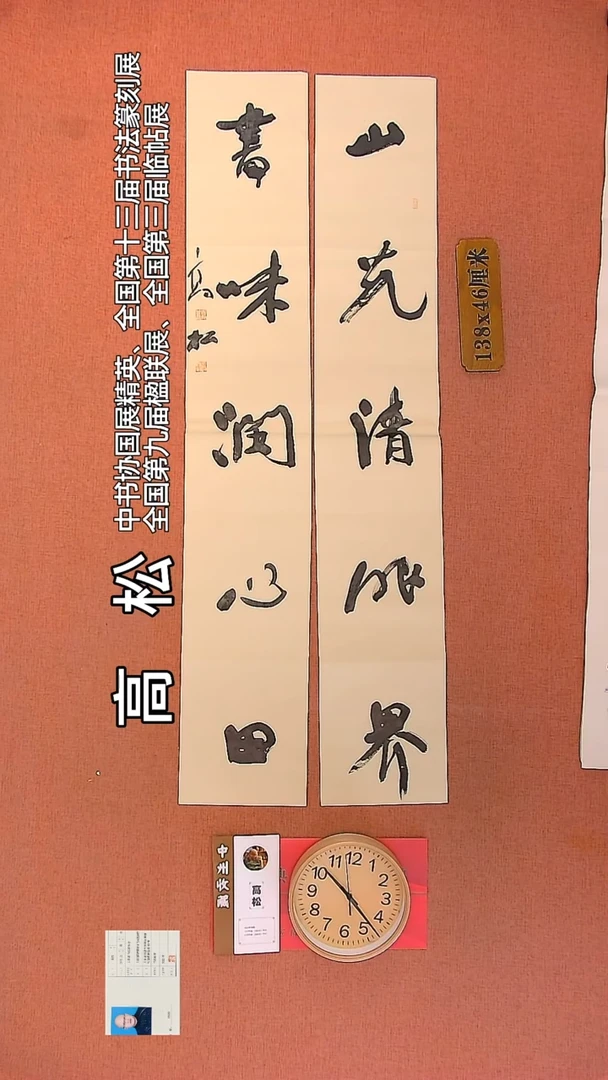 山光清眼界
書味润心田
高松
138x46厘米
高 松
中书协国展精英、全国第十三届书法篆刻展
全国第九届楹联展、全国第三届临帖展
高松
12
1
2
3
4
5
6
7
8
9
10
11